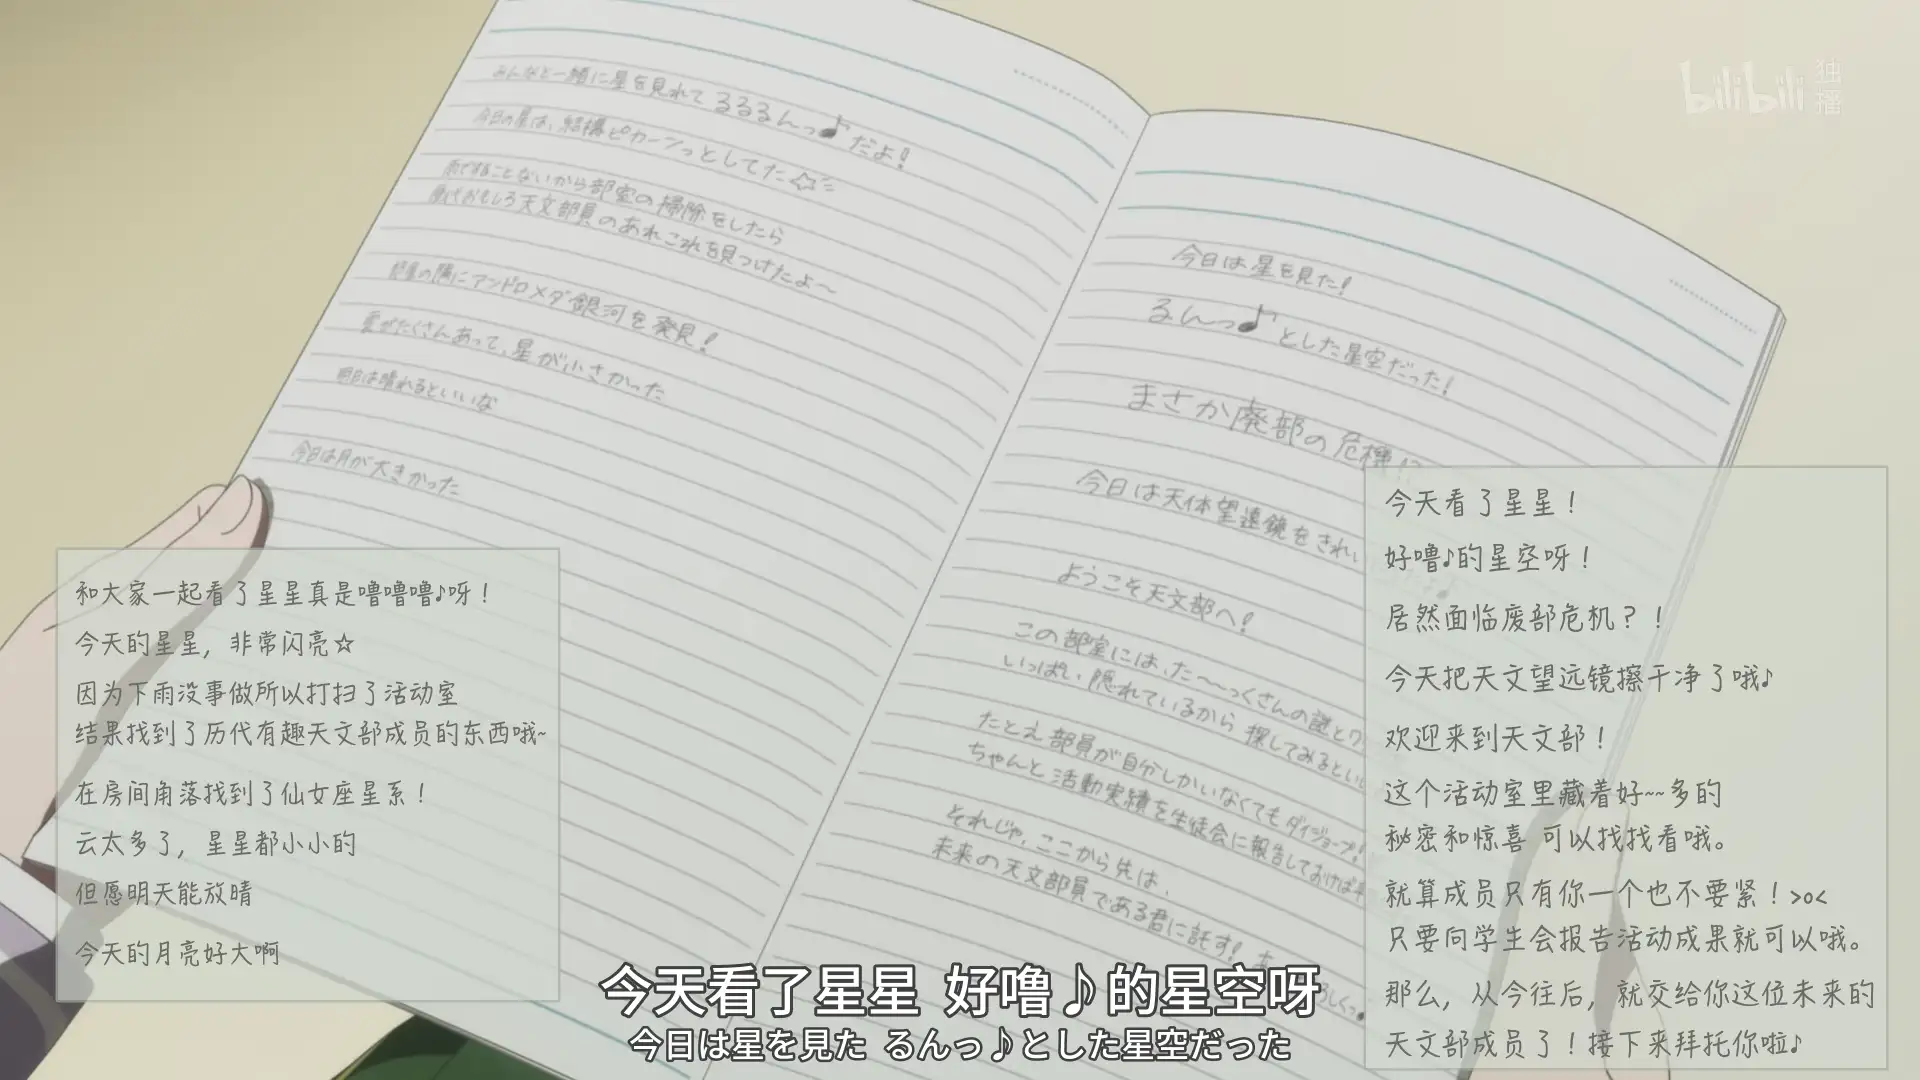 bilibili 独播
みんなと一緒に星を見れてるるるんっ♪だよ!
今日の星は、結構ピカーンっとしてた☆
雨ですることないから部室の掃除をしたら
歴代おもしろ天文部員のあれこれを見つけたよ〜
部屋の隅にアンドロメダ銀河を発見!
雲がたくさんあって、星が小さかった
明日は晴れるといいな
今日は月が大きかった
今日は星を見た!
るんっ♪とした星空だった!
まさか廃部の危機!?
今日は天体望遠鏡をきれい
ようこそ天文部へ!
この部室には、た〜〜っくさんの謎とワ
いっぱい隠れているから 探してみるといい
たとえ部員が自分しかいなくてもダイジョーブ!
ちゃんと活動実績を生徒会に報告しておけば
それじゃ、ここから先は、
未来の天文部員である君に託す!
和大家一起看了星星真是噜噜噜♪呀!
今天的星星,非常闪亮☆
因为下雨没事做所以打扫了活动室
结果找到了历代有趣天文部成员的东西哦~
在房间角落找到了仙女座星系!
云太多了,星星都小小的
但愿明天能放晴
今天的月亮好大啊
今天看了星星!
好噜♪的星空呀!
居然面临废部危机?!
今天把天文望远镜擦干净了哦♪
欢迎来到天文部!
这个活动室里藏着好~~多的
秘密和惊喜 可以找找看哦。
就算成员只有你一个也不要紧!>o<
只要向学生会报告活动成果就可以哦。
那么,从今往后,就交给你这位未来的
天文部成员了!接下来拜托你啦♪
今天看了星星 好噜♪的星空呀
今日は星を見た るんっ♪とした星空だった